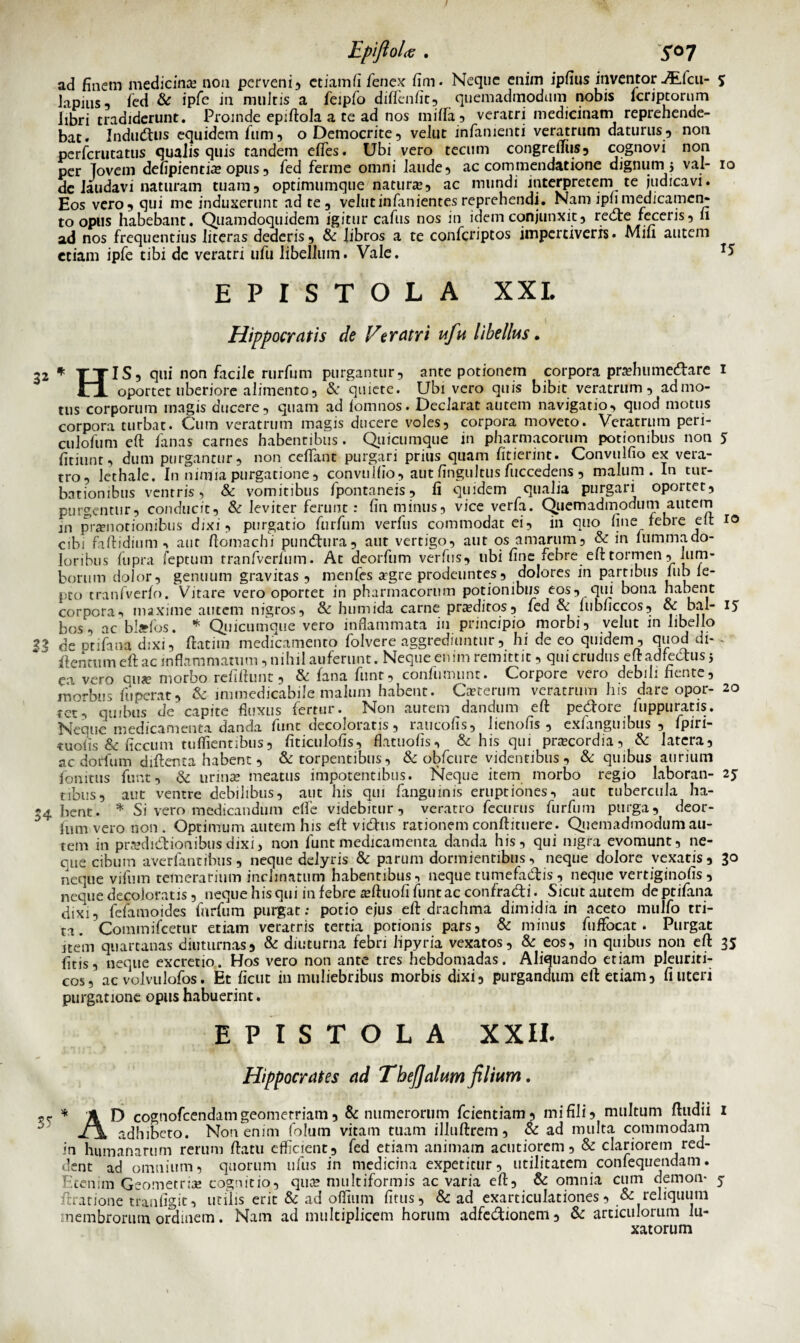 Epistolæ . 507
ad finem medicinæ non perveni, etiamsi senex sim. Neque enim ipsius inventor Æscu- 5
lapius, sed & ipse in multis a seipso dissensit, quemadmodum nobis scriptorum
libri tradiderunt. Proinde epistola a te ad nos missa, veratri medicinam reprehende-
bat. Inductus equidem sum, o Democrite, velut insanienti veratrum daturus, non
perscrutatus qualis quis tandem esses. Ubi vero tecum congressus, cognovi non
per Jovem desipientiæ opus, sed ferme omni laude, ac commendatione dignum; val- 10
de laudavi naturam tuam, optimumque naturæ, ac mundi interpretem te judicavi.
Eos vero, qui me induxerunt ad te, velut insanientes reprehendi. Nam ipsi medicamen-
to opus habebant. Quamdoquidem igitur casus nos in idem conjunxit, recte feceris, si
ad nos frequentius literas dederis, & libros a te conscriptos impertiveris. Misi autem
etiam ipse tibi de veratri usu libellum. Vale. 15
EPISTOLA XXI.
Hippocratis de Veratri usu libellus.
32 * HIS, qui non facile rursum purgantur, ante potionem corpora præhumectare 1
oportet uberiore alimento, & quiete. Ubi vero quis bibit veratrum, ad mo-
tus corporum magis ducere, quam ad somnos. Declarat autem navigatio, quod motus
corpora turbat. Cum veratrum magis ducere voles, corpora moveto. Veratrum peri-
culosum est sanas carnes habentibus. Quicumque in pharmacorum potionibus non 5
sitiunt, dum purgantur, non cessant purgari prius quam sitierint. Convulsio ex vera-
tro, lethale. In nimia purgatione, convulsio, aut singultus succedens, malum. In tur-
bationibus ventris, & vomitibus spontaneis, si quidem qualia purgari oportet,
purgentur, conducit, & leviter ferunt: sin minus, vice versa. Quemadmodum autem
in prænotionibus dixi, purgatio sursum versus commodat ei, in quo sine febre est 10
cibi fastidium, aut stomachi punctura, aut vertigo, aut os amarum, & in summa do-
loribus supra septum transversum. At deorsum versus, ubi sine febre est tormen, lum-
borum dolor, genuum gravitas, menses ægre prodeuntes, dolores in partibus sub se-
pto transverso. Vitare vero oportet in pharmacorum potionibus eos, qui bona habent
corpora, maxime autem nigros, & humida carne præditos, sed & subsiccos, & bal- 15
bos, ac blæsos. * Quicumque vero inflammata in principio morbi, velut in libello
33 de ptisana dixi, statim medicamento solvere aggrediuntur, hi de eo quidem, quod di-
stentum est ac inflammatum, nihil auferunt. Neque enim remittit, qui crudus est adfectus;
ea vero quæ morbo resistunt, & sana sunt, consumunt. Corpore vero debili siente,
morbus superat, & immedicabile malum habent. Cæterum veratrum his dare opor- 20
tet, quibus de capite fluxus fertur. Non autem dandum est pectore suppuratis.
Neque medicamenta danda sunt decoloratis, raucosis, lienosis, exsanguibus, spiri-
tuosis & siccum tussientibus, siticulosis, flatuosis, & his qui præcordia, & latera,
ac dorsum distenta habent, & torpentibus, & obscure videntibus, & quibus aurium
sonitus sunt, & urinæ meatus impotentibus. Neque item morbo regio laboran- 25
tibus, aut ventre debilibus, aut his qui sanguinis eruptiones, aut tubercula ha-
34 bent. * Si vero medicandum esse videbitur, veratro securus sursum purga, deor-
sum vero non. Optimum autem his est victus rationem constituere. Quemadmodum au-
tem in prædictionibus dixi, non sunt medicamenta danda his, qui nigra evomunt, ne-
que cibum aversantibus, neque delyris & parum dormientibus, neque dolore vexatis, 30
neque visum temerarium inclinatum habentibus, neque tumefactis, neque vertiginosis,
neque decoloratis, neque his qui in febre æstuosi sunt ac confracti. Sicut autem de ptisana
dixi, sesamoides sursum purgat: potio ejus est drachma dimidia in aceto mulso tri-
ta. Commisceetur etiam veratris tertia potionis pars, & minus suffocat. Purgat
item quartanas diuturnas, & diuturna febri lipyria vexatos, & eos, in quibus non est 35
sitis, neque excretio. Hos vero non ante tres hebdomadas. Aliquando etiam pleuriti-
cos, ac volvulosos. Et sicut in muliebribus morbis dixi, purgandum est etiam, si uteri
purgatione opus habuerint.
EPISTOLA XXII.
Hippocrates ad Thessalum filium.
35 * AD cognoscendam geometriam, & numerorum scientiam, mi fili, multum studii 1
adhibeto. Non enim solum vitam tuam illustrem, & ad multa commodam
in humanarum rerum statu efficient, sed etiam animam acutiorem, & clariorem red-
dent ad omnium, quorum usus in medicina expetitur, utilitatem consequendam.
Etenim Geometriæ cognitio, quæ multiformis ac varia est, & omnia cum demon- 5
stratione transigit, utilis erit & ad ossium situs, & ad exarticulationes, & reliquum
membrorum ordinem. Nam ad multiplicem horum adfectionem, & articulorum lu-
xatorum